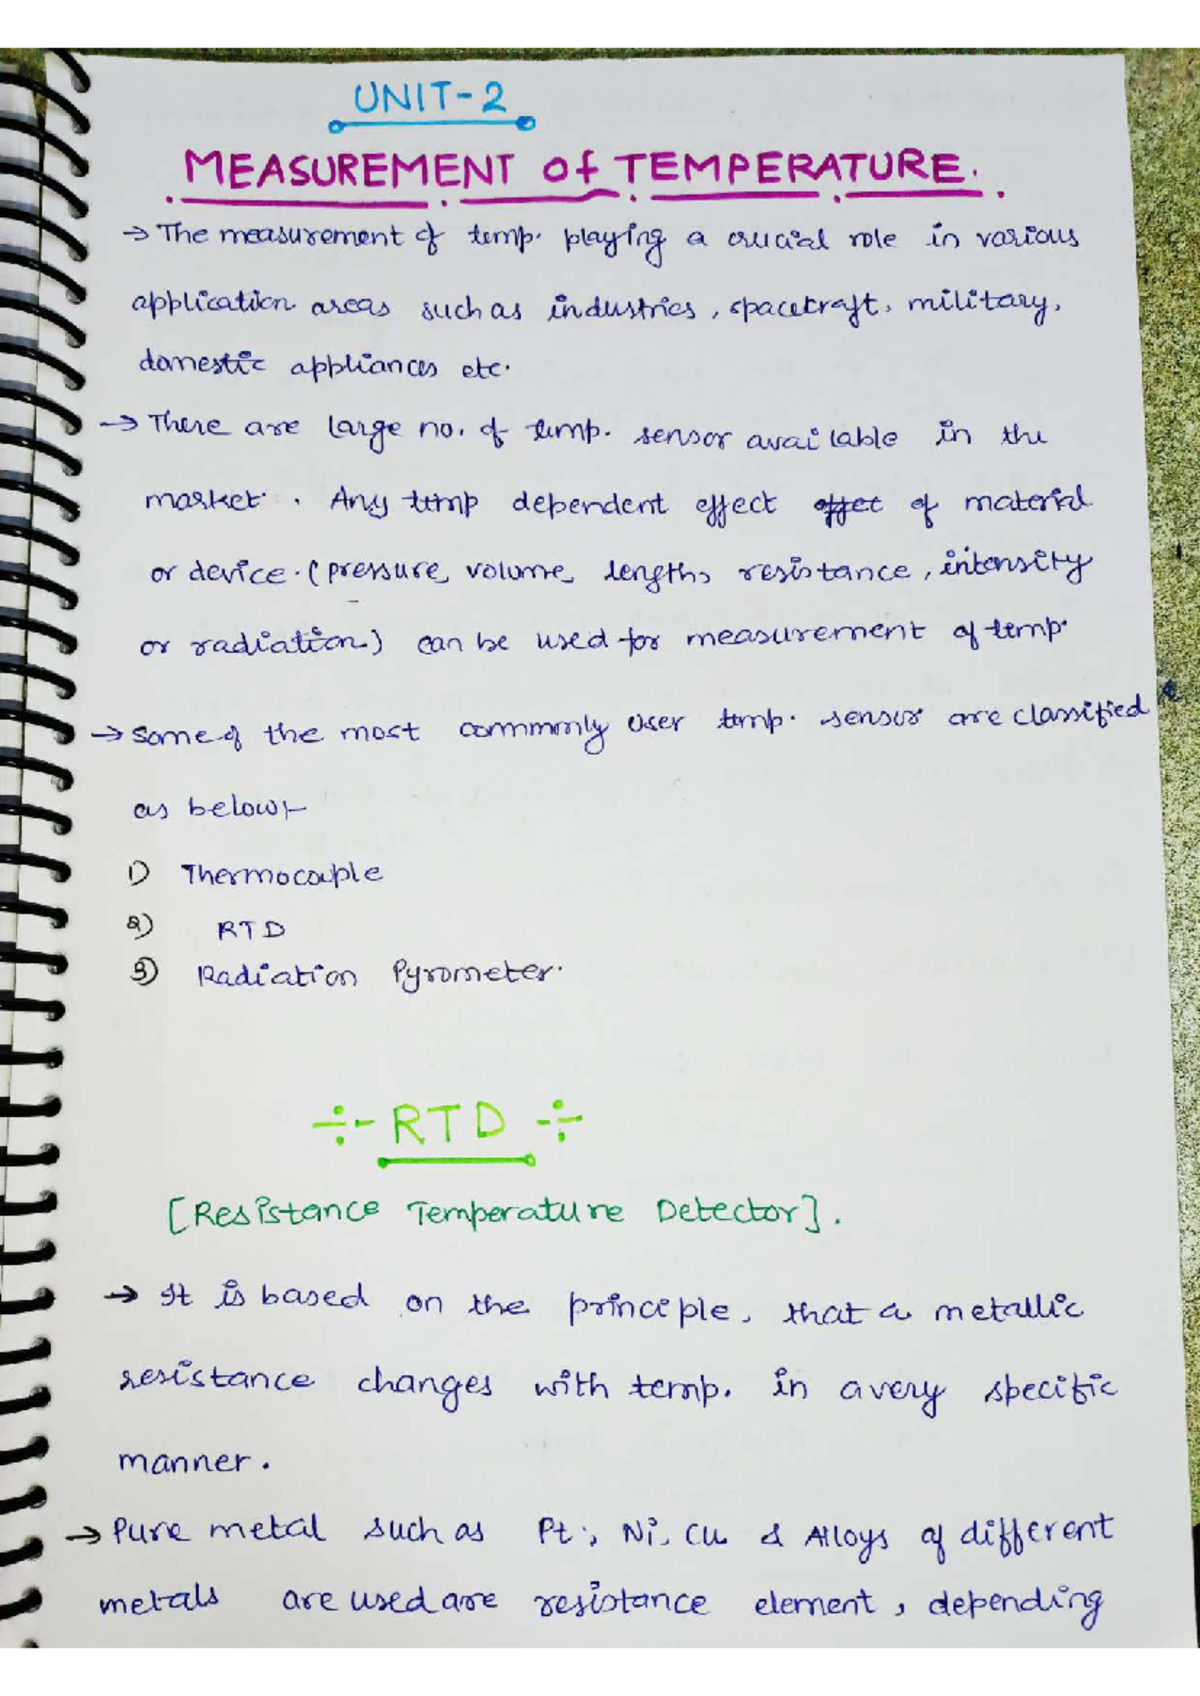 UNIT-2
MEASUREMENT of TEMPERATURE.
→ The measurement of temp. playing a crucial role in various
application areas such as industries, spacecraft, military,
domestic appliances etc.
→ There are large no. of temp. sensor available in the
market. Any temp dependent effect effec of material
or device. (pressure, volume, length, resistance, intensity
or radiation.) can be used for measurement of temp.
→ Some of the most commonly user temp. sensor are classified
as below:-
1) Thermocouple
2) RTD
3) Radiation Pyrometer.
÷- RTD -÷
[Resistance Temperature Detector].
→ It is based on the principle, that a metallic
resistance changes with temp. in a very specific
manner.
→ Pure metal such as Pt, Ni, Cu & Alloys of different
metals are used are resistance element, depending